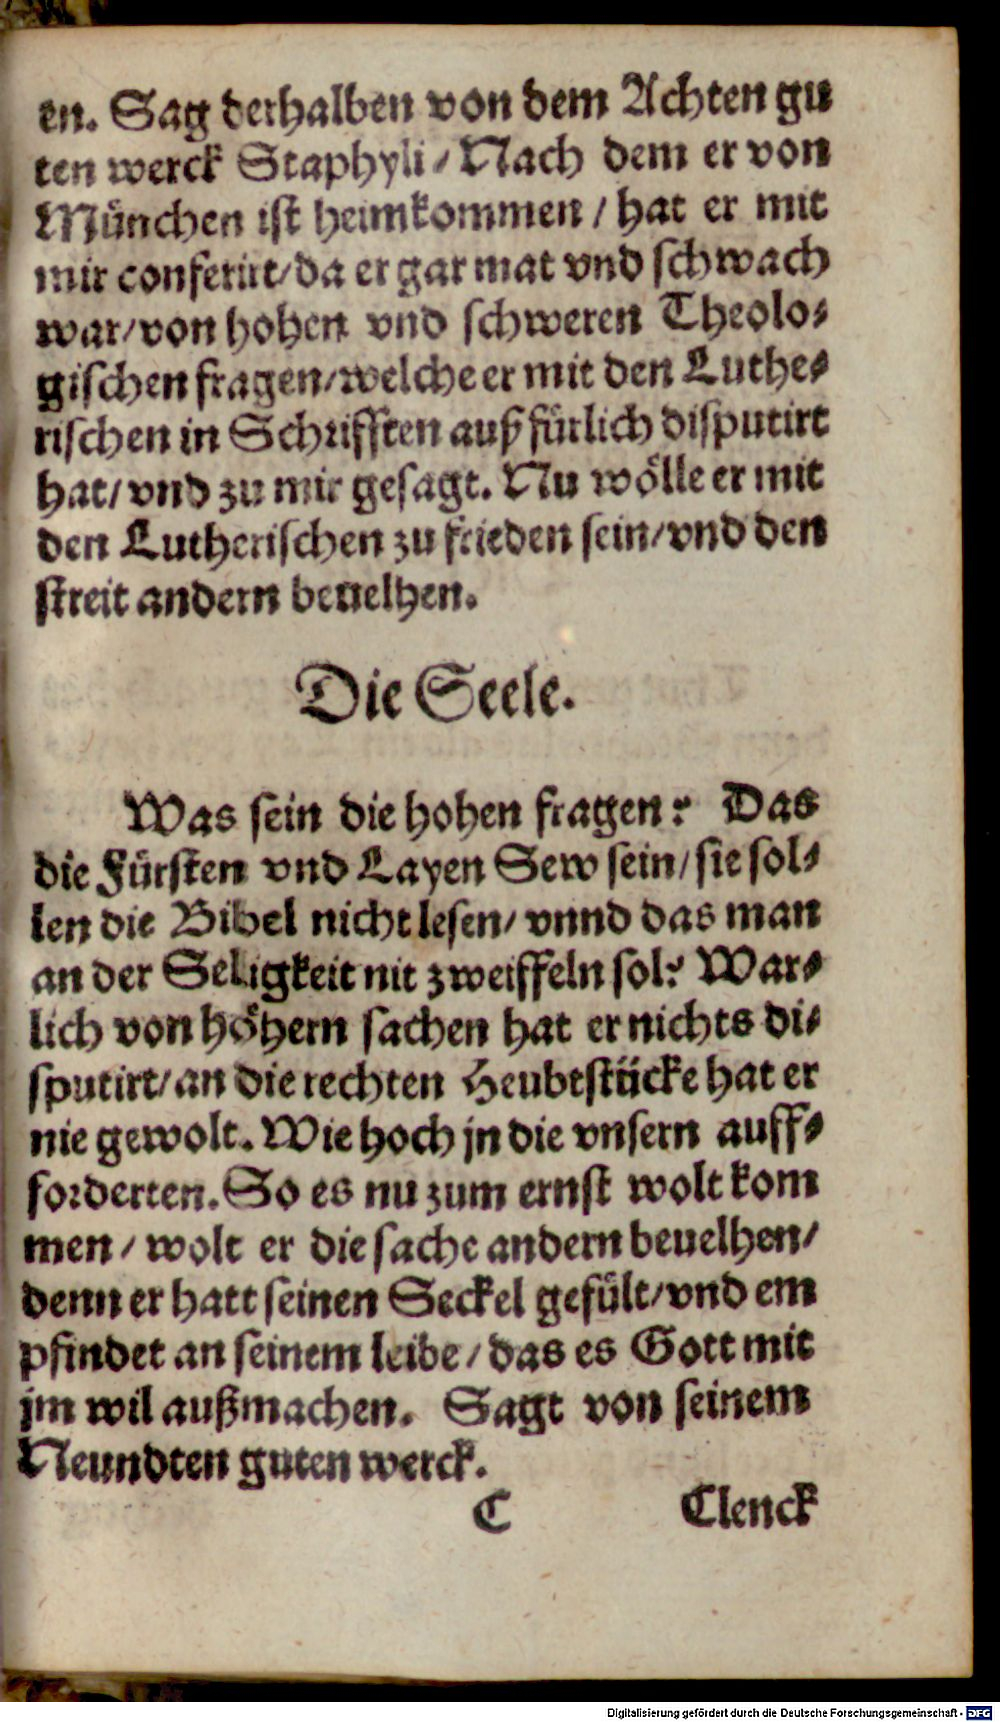 en. Sag derhalben von dem Achten gu
ten werck Staphyli / Nach dem er von
München ist heimkommen / hat er mit
mir conferirt / da er gar mat vnd schwach
war / von hohen vnd schweren Theolo⸗
gischen fragen / welche er mit den Luthe⸗
rischen in Schrifften außfürlich disputirt
hat / vnd zu mir gesagt. Nu wölle er mit
den Lutherischen zu frieden sein / vnd den
streit andern beuelhen.
Die Seele.
Was sein die hohen fragen? Das
die Fürsten vnd Layen Sew sein / sie sol⸗
len die Bibel nicht lesen / vnnd das man
an der Seligkeit nit zweiffeln sol? War⸗
lich von höhern sachen hat er nichts di⸗
sputirt / an die rechten Heubtstücke hat er
nie gewolt. Wie hoch jn die vnsern auff⸗
forderten. So es nu zum ernst wolt kom
men / wolt er die sache andern beuelhen /
denn er hatt seinen Seckel gefült / vnd em
pfindet an seinem leibe / das es Gott mit
jm wil außmachen. Sagt von seinem
Neundten guten werck.
C Clenck
Digitalisierung gefördert durch die Deutsche Forschungsgemeinschaft - DFG